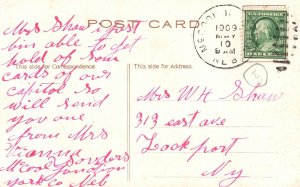 POST CARD
This side for Correspondence.
This side for Address.
1909
MAY
10
9 AM
NEB.
Mrs Shaw i just
bin able to get
hold of som
cards of our
capitol so
will send
you one
from Mrs
Sanders
McCool Junction
York Co Neb
Mrs W H Shaw
313 east ave
Lockport
Ny